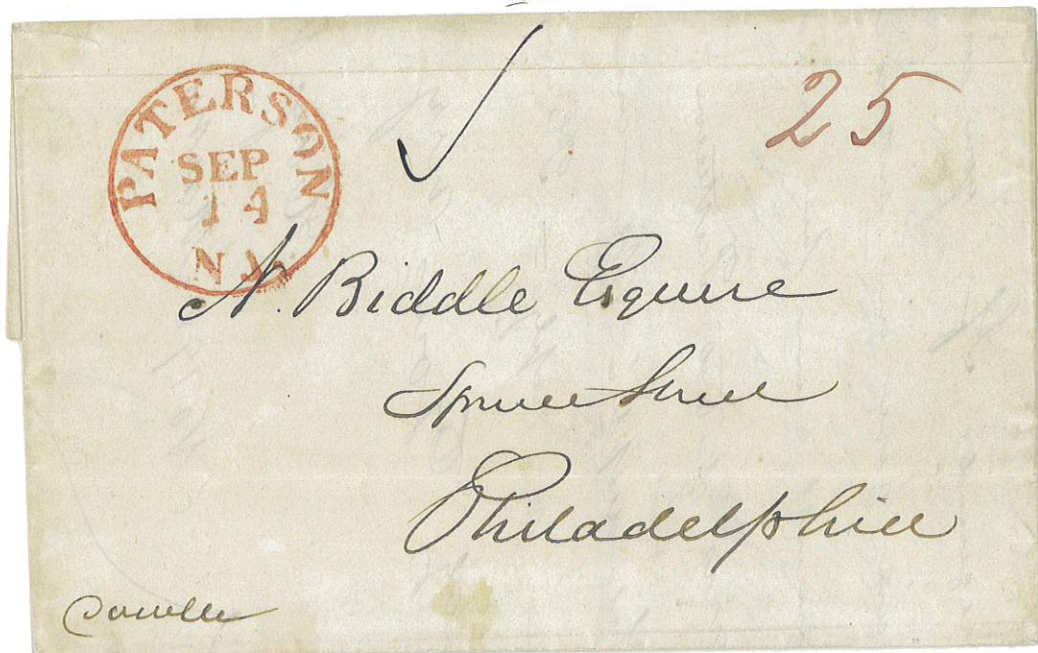 PATERSON
SEP
14
N.J.
25
N. Biddle Esquire
Spruce Street
Philadelphia
Double